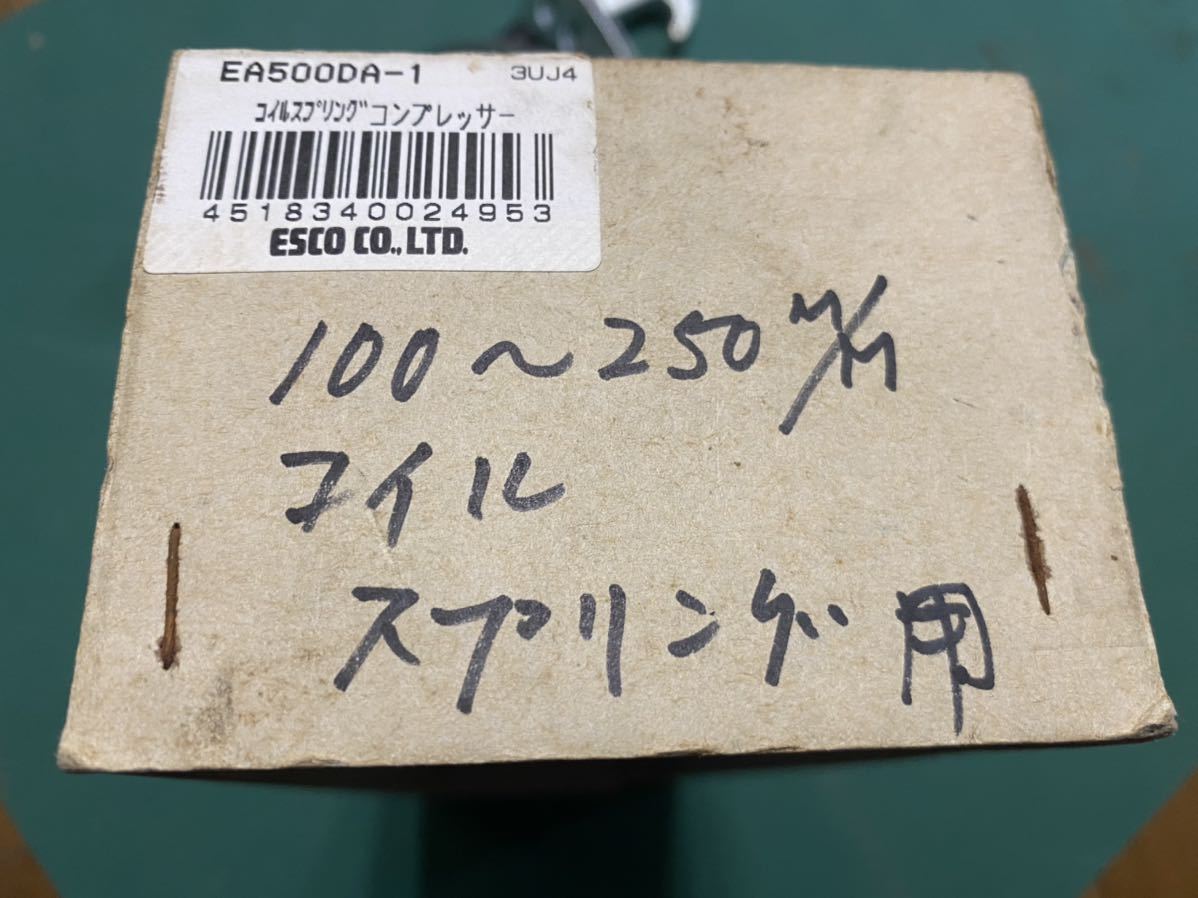 EA500DA-1 3UJ4
ｺｲﾙｽﾌﾟﾘﾝｸﾞコンプレッサー
4518340024953
ESCO CO.,LTD.
100～250 M/M
コイル
スプリング用